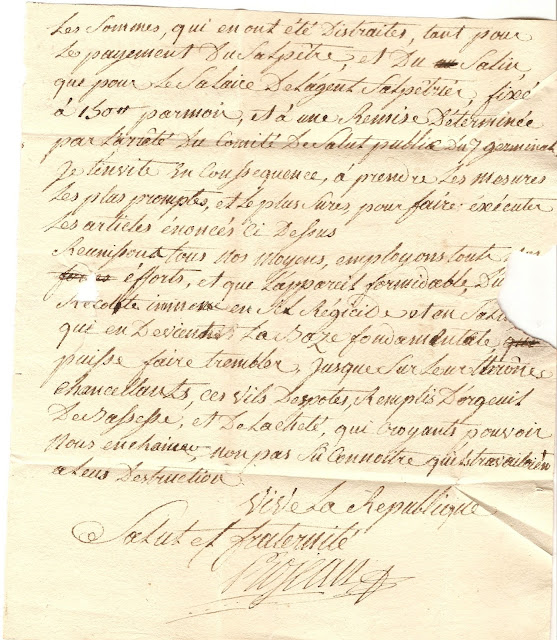 Les sommes, qui en ont été distraites, tant pour
Le payement Du Salpêtre, et Du Salin,
que pour Le Salaire De L'agent Salpêtrier, fixé
à 150ᵗᵗ par mois, et à une Remise Déterminée
par L'arrêté Du Comité De Salut public du 7 germinal
Je t'invite En Conssequence, à prendre Les mesures
Les plus promptes, et Le plus Sures, pour faire exécuter
Les articles énoncés Ci Dessus
Reunissons tous nos moyens, employons tout
efforts, et que L'appareil formidable, Du
Récolte immense en Sel Régicide et en
qui en Devient La Baze fondamentale
puisse faire trembler, Jusque Sur Leur thrône
chancellants, ces Vils Despotes, Remplis D'orgeuil
De Bassesse, et De Lacheté, qui Croyants pouvoir
Nous enchainer, non pas Sû Connoitre qu'ils travailloien
a Leur Destruction
Vive La Republique
Salut et fraternité